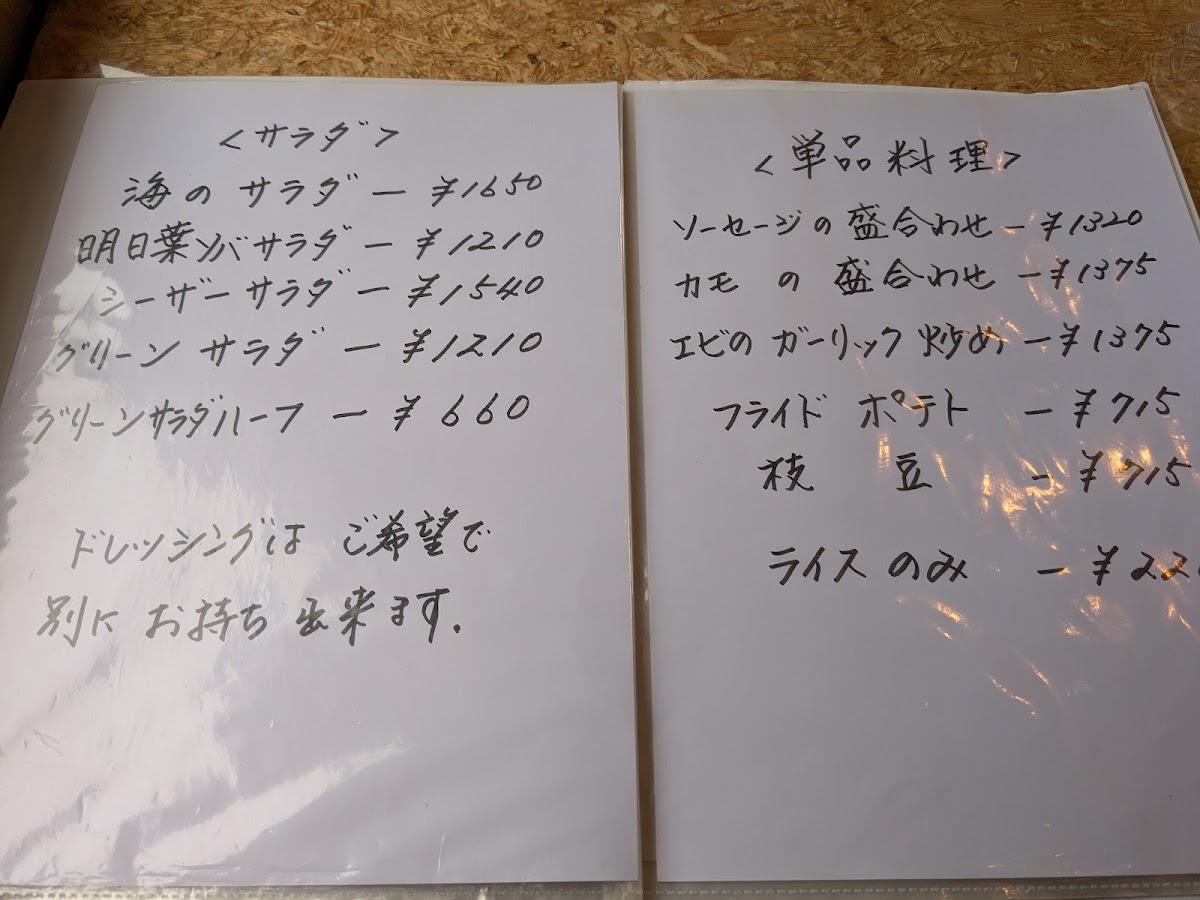 <サラダ>
海のサラダ ー ¥1650
明日葉ソバサラダ ー ¥1210
シーザーサラダ ー ¥1540
グリーン サラダ ー ¥1210
グリーンサラダハーフ ー ¥660
ドレッシングは ご希望で
別に お持ち 出来ます.
<単品料理>
ソーセージの 盛合わせ ー ¥1320
カモ の 盛合わせ ー ¥1375
エビの ガーリック 炒め ー ¥1375
フライド ポテト ー ¥715
枝 豆 ー ¥715
ライス のみ ー ¥22